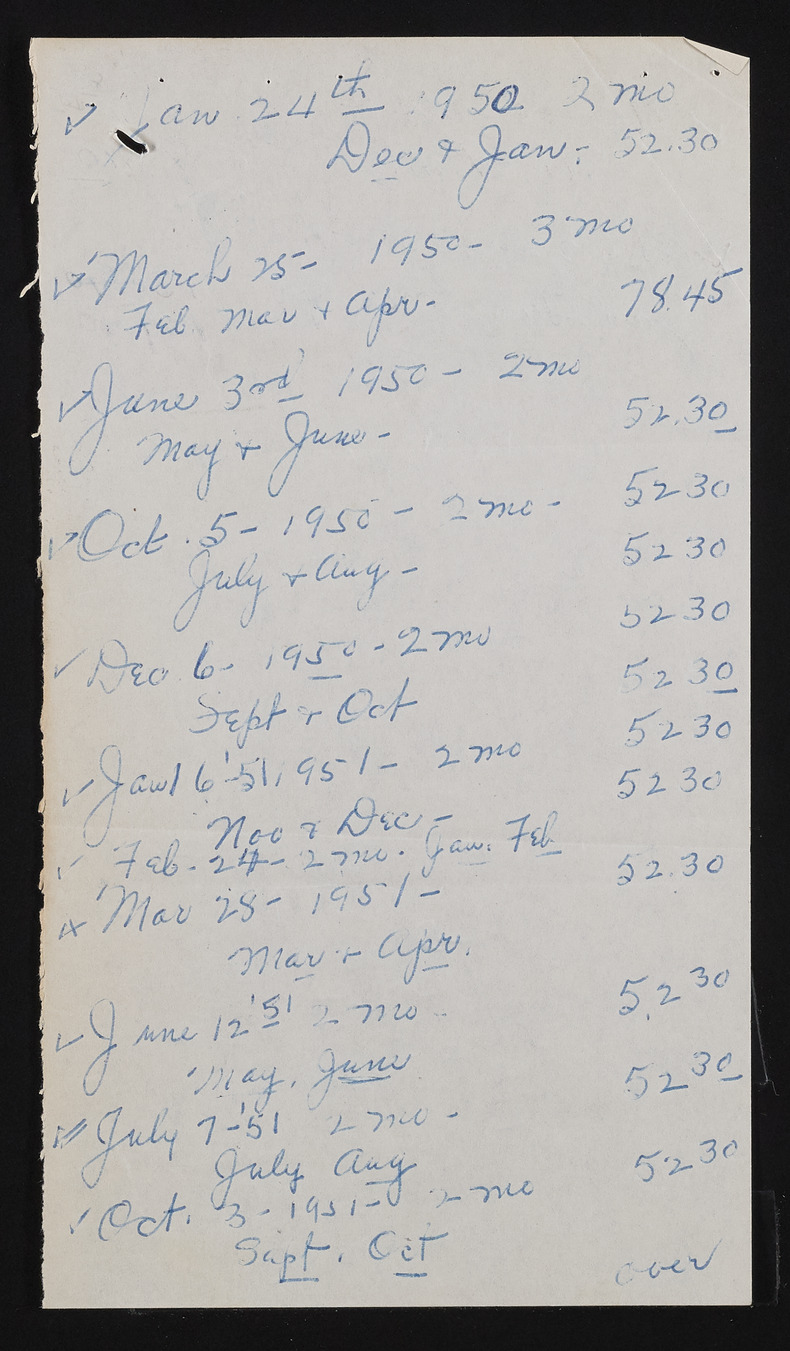 ✓ Jan 24th 1950 2 mo
Dec & Jan - 52.30
✓ March 25 - 1950 - 3 mo
Feb Mar & Apr - 78.45
✓ June 3rd 1950 - 2 mo
May & June - 52.30
✓ Oct. 5 - 1950 - 2 mo - 52 30
July & Aug - 52 30
52 30
✓ Dec 6 - 1950 - 2 mo
Sept & Oct 52 30
✓ Jan 6 '51, 1951 - 2 mo 52 30
52 30
Nov & Dec -
✓ Feb - 24 - 2 mo. Jan. Feb
52.30
x Mar 28 - 1951 -
Mar & Apr.
✓ June 12 '51 2 mo 52 30
May, June
52 30
✓ July 7 - '51 2 mo -
July Aug 52 30
✓ Oct. 3 - 1951 - 2 mo
Sept. Oct
over